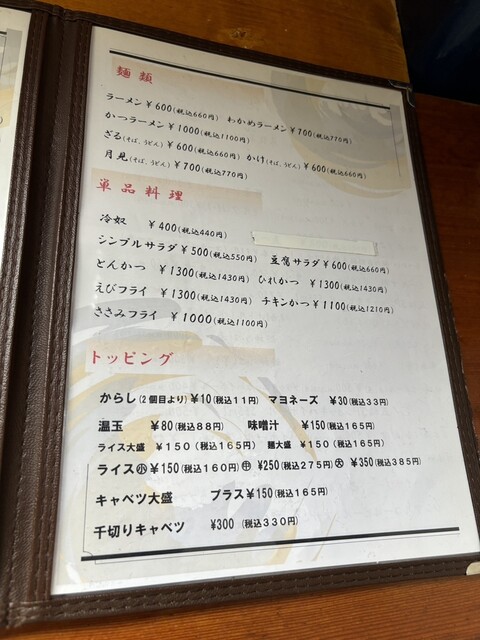 麺類
ラーメン ¥600(税込660円) わかめラーメン ¥700(税込770円)
かつラーメン ¥1000(税込1100円)
ざる(そば、うどん) ¥600(税込660円) かけ(そば、うどん) ¥600(税込660円)
月見(そば、うどん) ¥700(税込770円)
単品料理
冷奴 ¥400(税込440円)
シンプルサラダ ¥500(税込550円) 豆腐サラダ ¥600(税込660円)
とんかつ ¥1300(税込1430円) ひれかつ ¥1300(税込1430円)
えびフライ ¥1300(税込1430円) チキンかつ ¥1100(税込1210円)
ささみフライ ¥1000(税込1100円)
トッピング
からし(2個目より) ¥10(税込11円) マヨネーズ ¥30(税込33円)
温玉 ¥80(税込88円) 味噌汁 ¥150(税込165円)
ライス大盛 ¥150(税込165円) 麺大盛 ¥150(税込165円)
ライス㊙小 ¥150(税込160円) 中 ¥250(税込275円) 大 ¥350(税込385円)
キャベツ大盛 プラス¥150(税込165円)
千切りキャベツ ¥300 (税込330円)